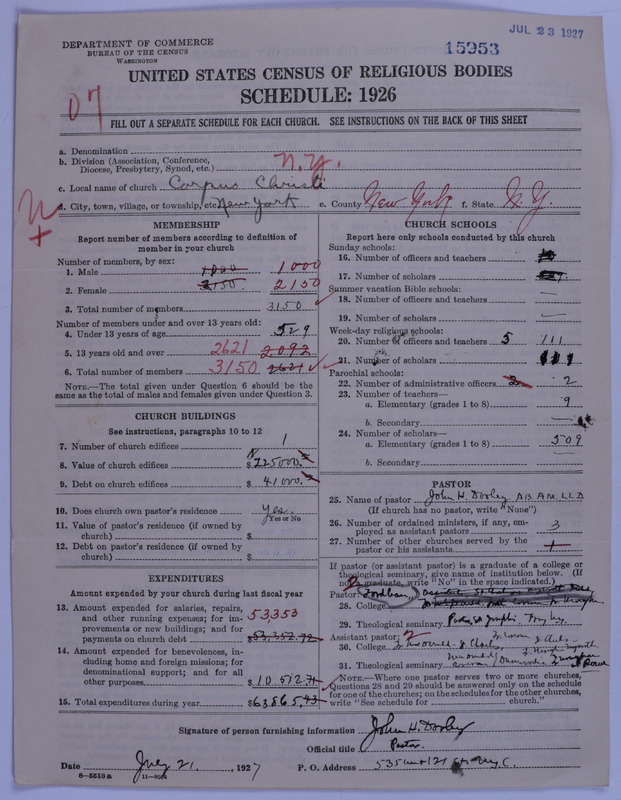 JUL 23 1927
15953
DEPARTMENT OF COMMERCE
BUREAU OF THE CENSUS
WASHINGTON
UNITED STATES CENSUS OF RELIGIOUS BODIES
SCHEDULE: 1926
07
FILL OUT A SEPARATE SCHEDULE FOR EACH CHURCH. SEE INSTRUCTIONS ON THE BACK OF THIS SHEET
a. Denomination
b. Division (Association, Conference, Diocese, Presbytery, Synod, etc.) N.Y.
c. Local name of church Corpus Christi
d. City, town, village, or township, etc. New York e. County New York f. State N.Y.
MEMBERSHIP
Report number of members according to definition of
member in your church
Number of members, by sex:
1. Male 1000 1000
2. Female 2150 2150
3. Total number of members 3150
Number of members under and over 13 years old:
4. Under 13 years of age 529
5. 13 years old and over 2621 2,092
6. Total number of members 3150 2621
NOTE.—The total given under Question 6 should be
same as the total of males and females given under Question 3.
CHURCH BUILDINGS
See instructions, paragraphs 10 to 12
7. Number of church edifices 1
8. Value of church edifices $225000.
9. Debt on church edifices $41000.
10. Does church own pastor's residence Yes.
Yes or No
11. Value of pastor's residence (if owned by
church) $
12. Debt on pastor's residence (if owned by
church) $
EXPENDITURES
Amount expended by your church during last fiscal year
13. Amount expended for salaries, repairs,
and other running expenses; for im-
provements or new buildings; and for
payments on church debt $53,352.72
53,353
14. Amount expended for benevolences, in-
cluding home and foreign missions; for
denominational support; and for all
other purposes $10.512.71
15. Total expenditures during year $63865.43
CHURCH SCHOOLS
Report here only schools conducted by this church
Sunday schools:
16. Number of officers and teachers
17. Number of scholars
Summer vacation Bible schools:
18. Number of officers and teachers —
19. Number of scholars —
Week-day religious schools:
20. Number of officers and teachers 5 111
21. Number of scholars 111
Parochial schools:
22. Number of administrative officers 2 2
23. Number of teachers—
a. Elementary (grades 1 to 8) 9
b. Secondary —
24. Number of scholars—
a. Elementary (grades 1 to 8) 509
b. Secondary —
PASTOR
25. Name of pastor John H. Dooley A.B. A.M. LL.D
(If church has no pastor, write "None")
26. Number of ordained ministers, if any, em-
ployed as assistant pastors 3
27. Number of other churches served by the
pastor or his assistants 1
If pastor (or assistant pastor) is a graduate of a college or
theological seminary, give name of institution below. (If
not a graduate, write "No" in the space indicated.)
Pastor: Fordham
28. College
29. Theological seminary
Assistant pastor: 2
30. College
31. Theological seminary
NOTE.—Where one pastor serves two or more churches,
Questions 28 and 29 should be answered only on the schedule
for one of the churches; on the schedules for the other churches,
write "See schedule for church."
Signature of person furnishing information John H. Dooley
Official title Pastor.
Date July 21, 1927 P. O. Address 535 West 121 St. N.Y.C.
8—5518a 11—9034